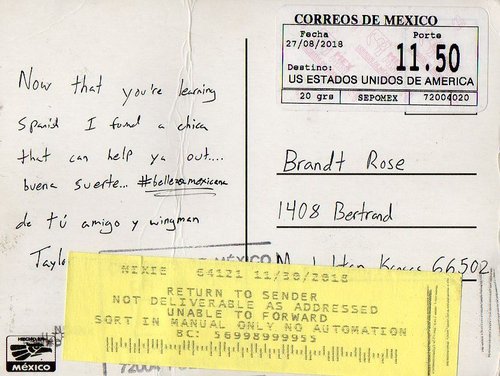 CORREOS DE MEXICO
Fecha Porte
27/08/2018
11.50
Destino:
US ESTADOS UNIDOS DE AMERICA
20 grs SEPOMEX 72004020
Now that you're learning
Spanish I found a chica
that can help ya out....
buena suerte... #bellezamexicana
de tú amigo y wingman
Taylo
Brandt Rose
1408 Bertrand
Manhattan Kansas 66502
MÉXICO
NIXIE 64121 11/30/2018
RETURN TO SENDER
NOT DELIVERABLE AS ADDRESSED
UNABLE TO FORWARD
SORT IN MANUAL ONLY NO AUTOMATION
BC: 56998999955
HECHO EN
MÉXICO
72004